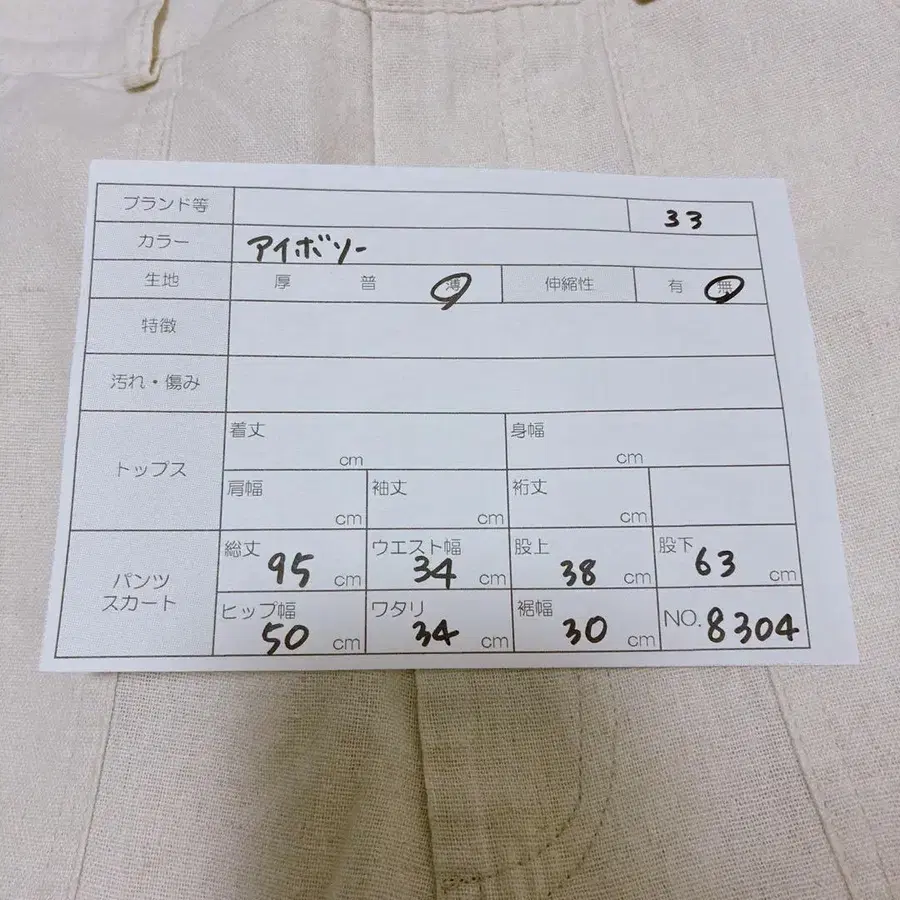 ブランド等 33
カラー アイボリー
生地 厚 普 薄 伸縮性 有 無
特徴
汚れ・傷み
トップス
着丈 cm 身幅 cm
肩幅 cm 袖丈 cm 裄丈 cm
パンツ
スカート
総丈 95 cm ウエスト幅 34 cm 股上 38 cm 股下 63 cm
ヒップ幅 50 cm ワタリ 34 cm 裾幅 30 cm NO. 8304